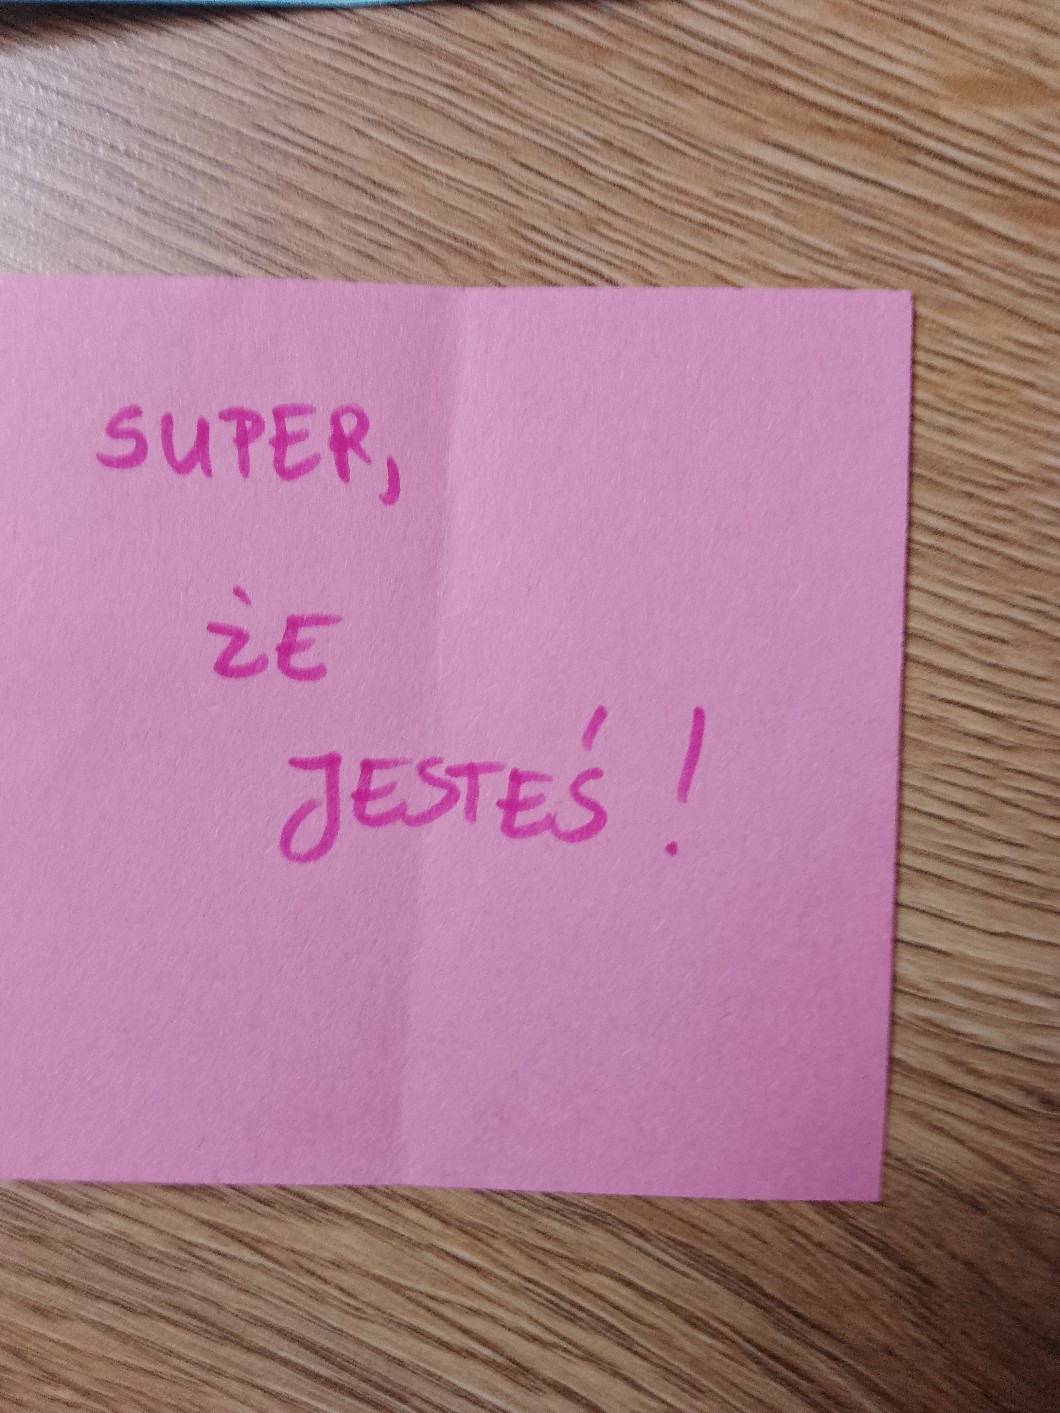 SUPER,
ŻE
JESTEŚ!